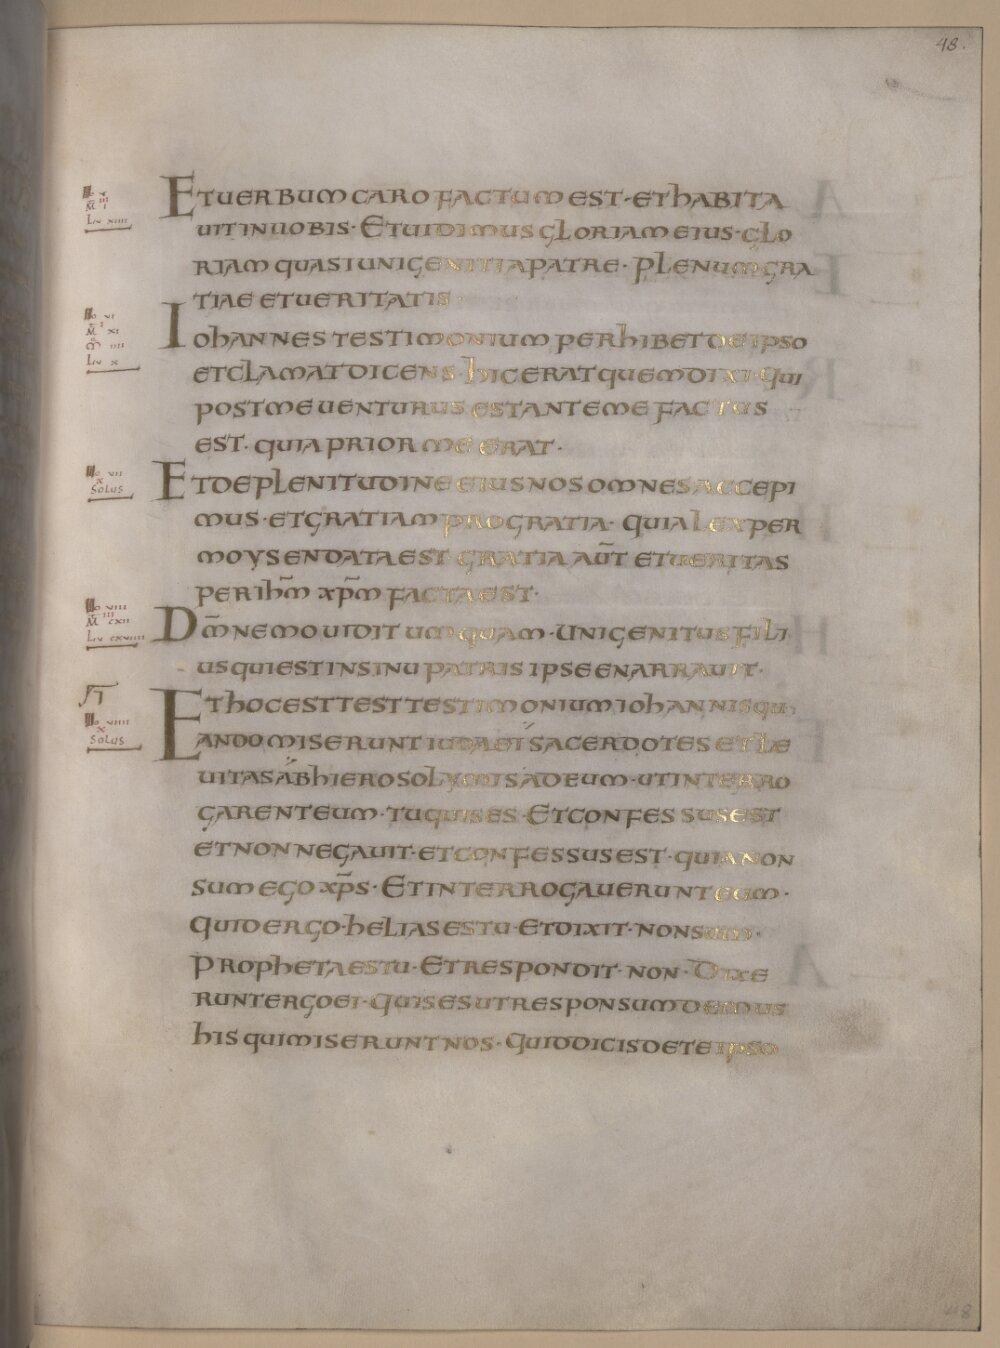 48.
ET UERBUM CARO FACTUM EST · ET hABITA
UIT IN NOBIS · ET UIDIMUS GLORIAM EIUS · GLO
RIAM QUASI UNIGENITI A PATRE · PLENUM GRA
TIAE ET UERITATIS
IOhANNES TESTIMONIUM PERhIBET DE IPSO
ET CLAMAT DICENS · hIC ERAT QUEM DIXI · QUI
POST ME UENTURUS EST ANTE ME FACTUS
EST · QUIA PRIOR ME ERAT ·
ET DE PLENITUDINE EIUS NOS OMNES ACCEPI
MUS · ET GRATIAM PRO GRATIA · QUIA LEX PER
MOYSEN DATA EST GRATIA AUT̄ ET UERITAS
PER Ihm̄ xpm̄ FACTA EST ·
Dm̄ NEMO UIDIT UMQUAM · UNIGENITUS FILI
US QUI EST IN SINU PATRIS IPSE ENARRAUIT ·
ET hOC EST TEST TESTIMONIUM IOhANNIS QU
ANDO MISERUNT IUDAEI SACERDOTES ET LE
UITAS AB hIEROSOLYMIS AD EUM · UT INTERRO
GARENT EUM · TU QUIS ES · ET CONFESSUS EST
ET NON NEGAUIT · ET CONFESSUS EST · QUIA NON
SUM EGO xp̄s · ET INTERROGAUERUNT EUM ·
QUID ERGO · hELIAS ES TU · ET DIXIT · NON SUM ·
PROPhETA ES TU · ET RESPONDIT · NON · DIXE
RUNT ERGO EI · QUIS ES UT RESPONSUM DEMUS
hIS QUI MISERUNT NOS · QUID DICIS DE TE IPSO
Io VI
M̄ XI
m̄ IIII
Lu X
Io VII
X
SOLUS
Io VIII
III
M̄ CXII
Lu CXVIIII
Io VIIII
X
SOLUS